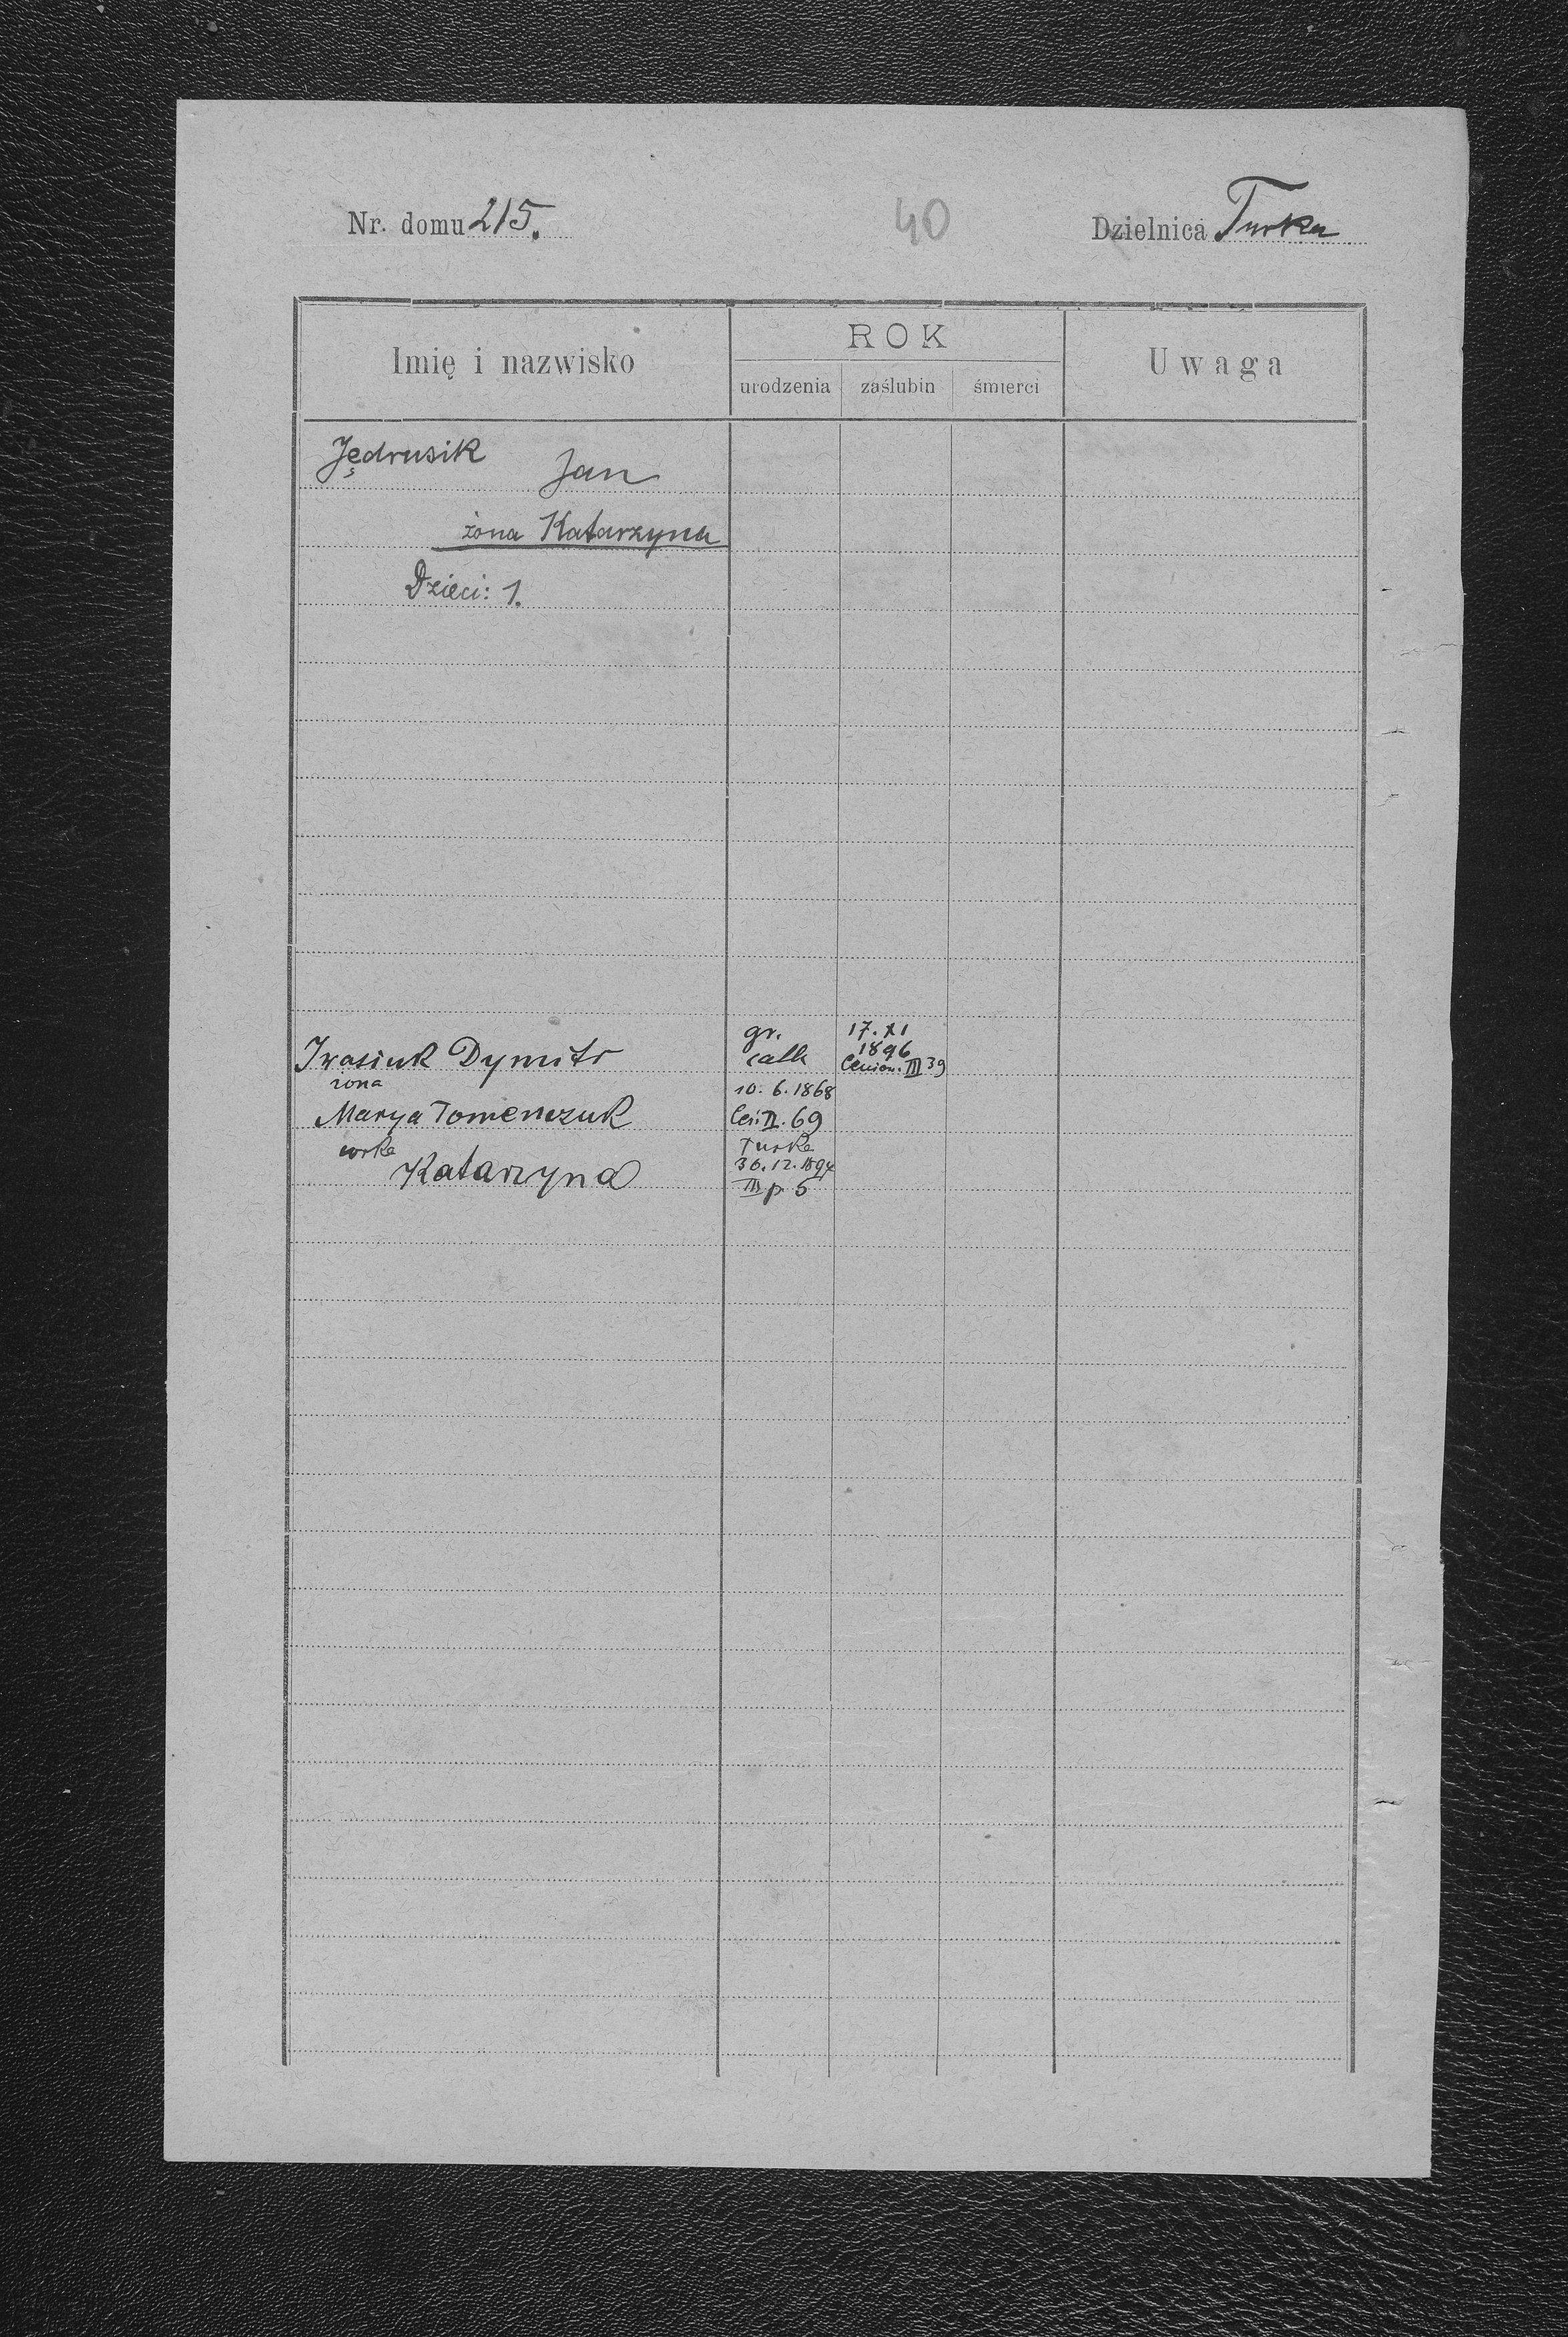 Nr. domu 215. 40 Dzielnica Turka
Imię i nazwisko ROK Uwaga
urodzenia zaślubin śmierci
Jędrusik Jan
żona Katarzyna
Dzieci: 1.
gr. 17. XI
Iwasiuk Dymitr cath 1896
III 39
zona 10. 6. 1868
Marya Tomenczuk II. 69
corka Turka
Katarzyna 30. 12. 1894
III p 5